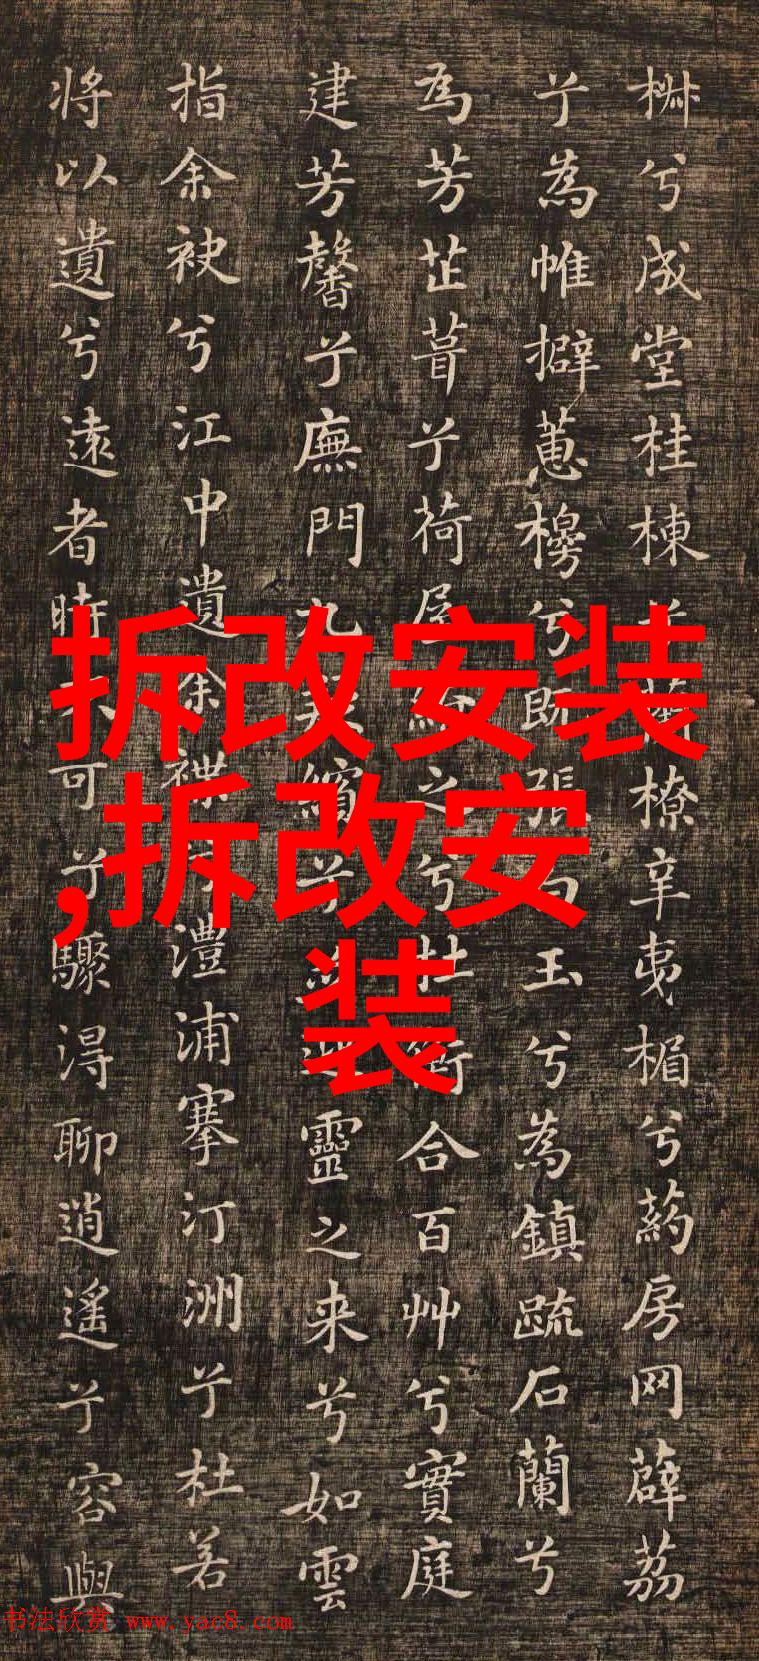 椒兮成堂桂棟兮蘭橑辛夷楣兮葯房网薜荔
兮為帷擗蕙櫋兮既張白玉兮為鎮疏石蘭兮
為芳芷葺兮荷屋繚之兮杜衡合百艸兮實庭
建芳馨兮廡門九嶷繽兮並迎靈之来兮如雲
指余袂兮江中遺余褋兮澧浦搴汀洲兮杜若
將以遺兮遠者時不可兮驟得聊逍遙兮容與
拆改安装
,拆改安
装
书法欣赏 www.yac8.com